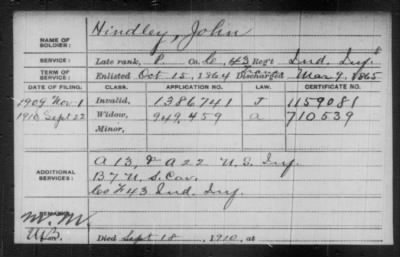 NAME OF SOLDIER: Hindley, John
SERVICE: Late rank, P Co. C, 43 Reg't Ind. Inf.
TERM OF SERVICE: Enlisted Oct 15, 1864 Discharged Mar 9, 1865
DATE OF FILING. CLASS. APPLICATION NO. CERTIFICATE NO.
1909 Nov 1 Invalid, 1386741 J 1159081
1910 Sept 22 Widow, 949.459 a 710539
Minor,
ADDITIONAL SERVICES:
A 13, & A 22 U.S. Inf.
B 7 U.S. Cav.
43 Ind. Inf.
REMARKS:
Died Sept 18, 1910, at